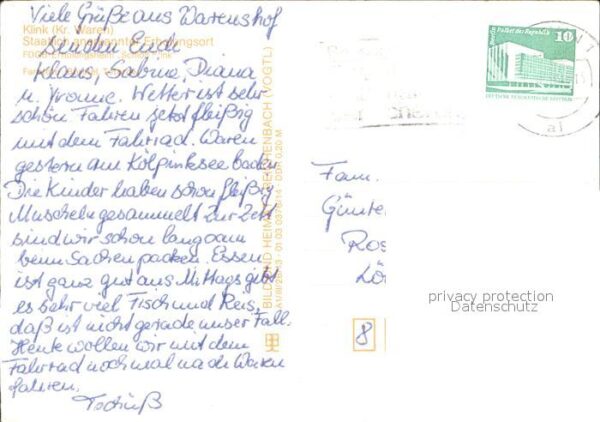 Viele Grüße aus Warenshof
senden Euch
Klaus, Sabine, Diana
u. Yvonne. Wetter ist sehr
schön Fahren jetzt fleißig
mit dem Fahrrad. Waren
gestern am Kölpinksee baden
Die Kinder haben schon fleißig
Muscheln gesammelt Zur Zeit
sind wir schon langsam
beim Sachen packen. Essen
ist ganz gut aus. Mittags gibt
es sehr viel Fisch und Reis,
daß ist nicht gerade unser Fall.
Heute wollen wir mit dem
Fahrrad noch mal nach Waren
fahren.
Tschüß
Klink (Kr. Waren)
Staatlich anerkannter Erholungsort
BILD UND HEIMAT REICHENBACH (VOGTL)
A1/III/26/13 01 03 0376/14 DDR 0,20 M
Palast der Republik
10
DEUTSCHE DEMOKRATISCHE REPUBLIK
Fam.
Günte
Ros
Lö
privacy protection
Datenschutz
8